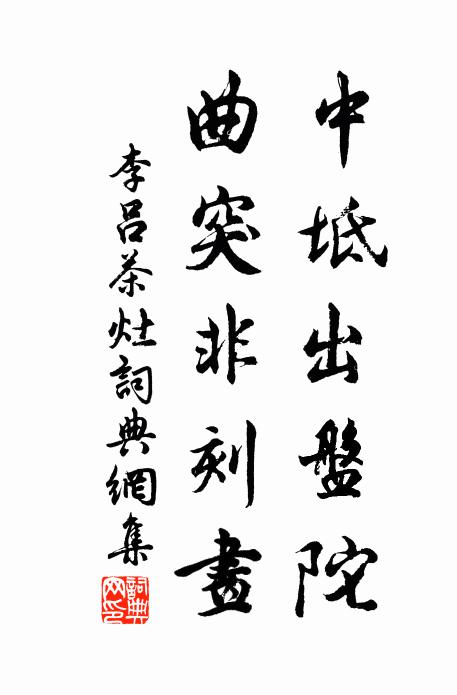 中坻出盤陀
曲突非刻畫
李呂茶灶詞典網集
詞典網印